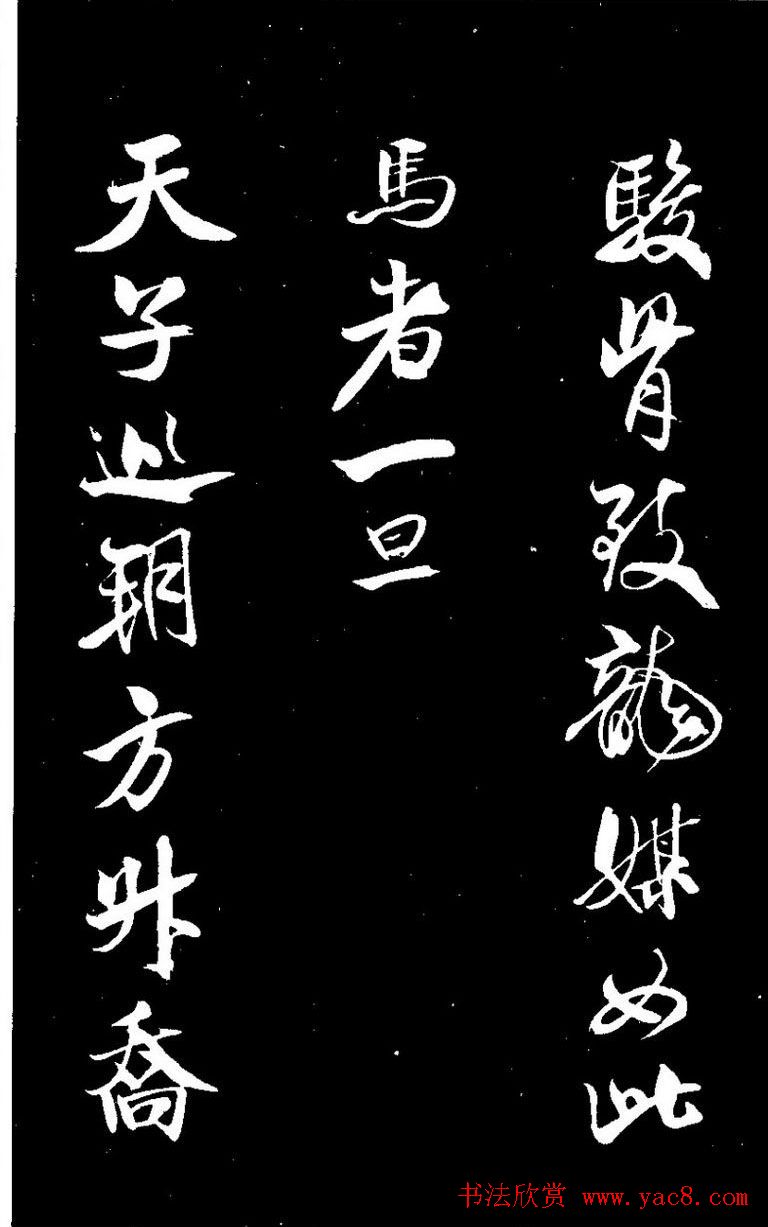 駿骨致龍媒如此
馬者一旦
天子巡朔方升喬
书法欣赏 www.yac8.com